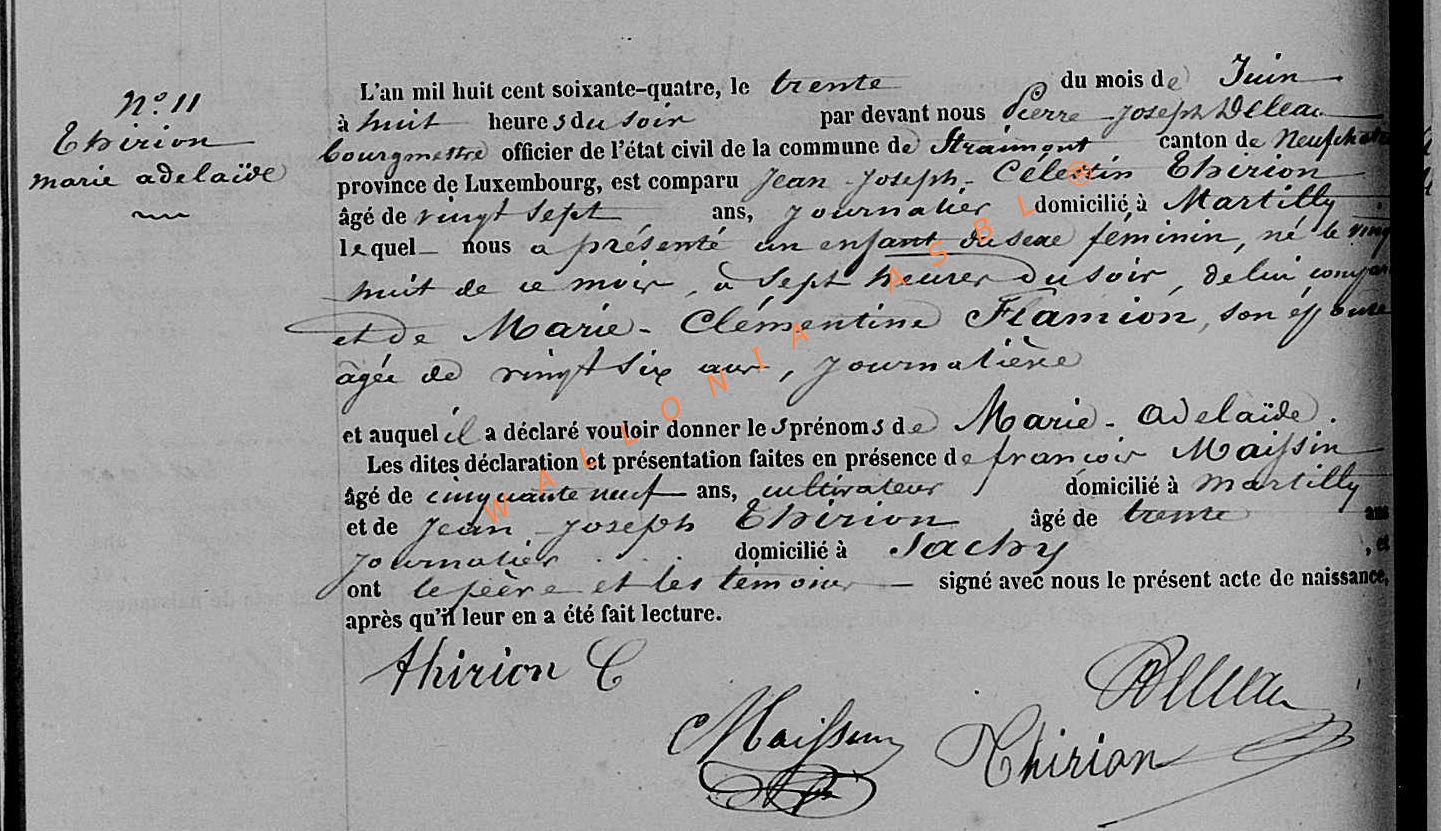 N° 11
Thirion
marie adelaïde
L'an mil huit cent soixante-quatre, le trente du mois de Juin
à huit heures du soir par devant nous Pierre Joseph Deleau
bourgmestre officier de l'état civil de la commune de Straimont canton de Neufchate
province de Luxembourg, est comparu Jean-Joseph-Célestin Thirion
âgé de vingt sept ans, journalier domicilié à Martilly
lequel nous a présenté un enfant du sexe féminin, né le ving
huit de ce mois, à sept heures du soir, de lui compar
et de Marie-Clémentine Flamion, son épouse
âgée de vingt six ans, journalière
et auquel il a déclaré vouloir donner les prénoms de Marie-Adelaïde.
Les dites déclaration et présentation faites en présence de françois Maissin
âgé de cinquante neuf ans, cultivateur domicilié à Martilly
et de Jean Joseph Thirion âgé de trente ans
journalier domicilié à Sachy , et
ont le père et les témoins signé avec nous le présent acte de naissance,
après qu'il leur en a été fait lecture.
thirion C
Deleau
Maissin
Thirion
WALLONIA ASBL ©